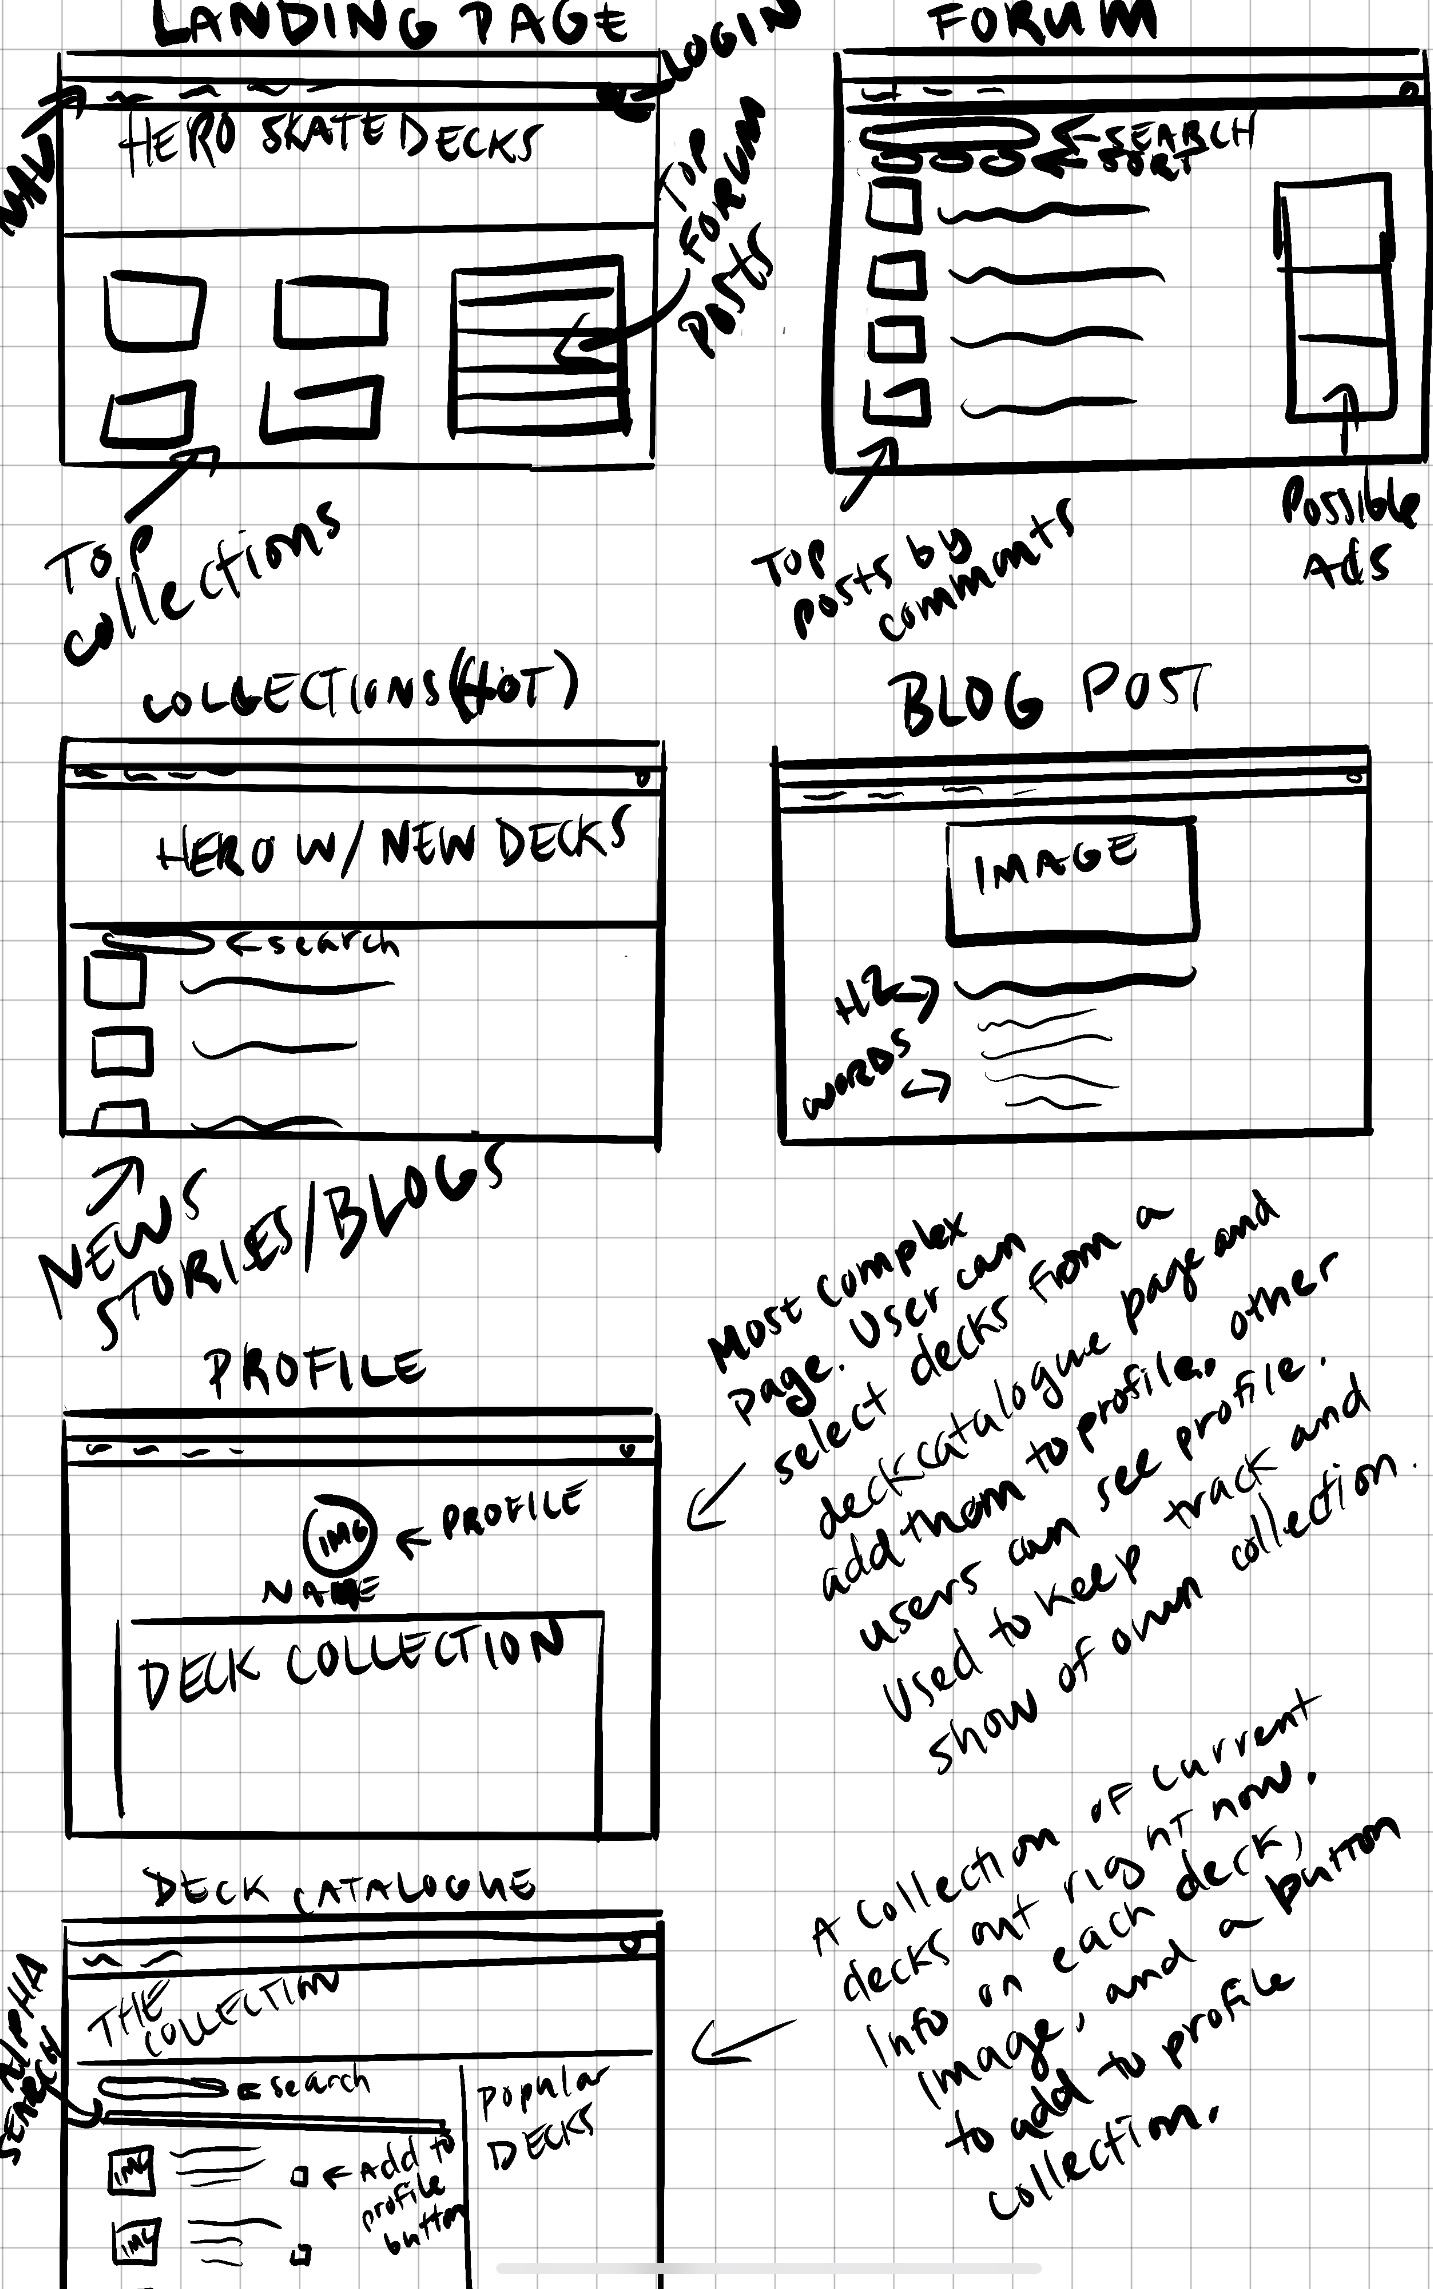 LANDING PAGE
LOGIN
NAV
HERO SKATE DECKS
TOP
FORUM
POSTS
TOP
collections
FORUM
SEARCH
SORT
TOP
posts by
commants
Possible
Ads
COLLECTIONS (HOT)
HERO W/ NEW DECKS
search
NEWS
STORIES/BLOGS
BLOG POST
IMAGE
H2
WORDS
PROFILE
IMG
PROFILE
NAME
DECK COLLECTION
Most complex
page. User can
select decks from a
deckcatalogue page and
add them to profile. other
users can see profile.
Used to keep track and
show of own collection.
DECK CATALOGUE
THE
COLLECTION
ALPHA
SEARCH
search
Popular
DECKS
IMG
Add to
profile
button
IMG
A collection of current
decks out right now.
Info on each deck,
image, and a button
to add to profile
collection.